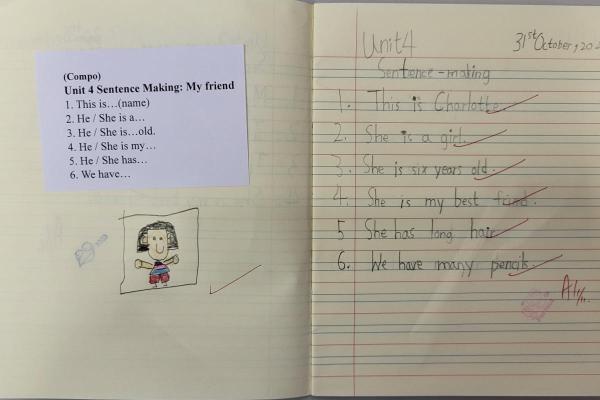 (Compo)
Unit 4 Sentence Making: My friend
1. This is…(name)
2. He / She is a…
3. He / She is…old.
4. He / She is my…
5. He / She has…
6. We have…
Unit4
31st October, 20
Sentence-making
1. This is Charlotte.
2. She is a girl.
3. She is six years old.
4. She is my best
5 She has long hair
6. We have many pencils.
A1